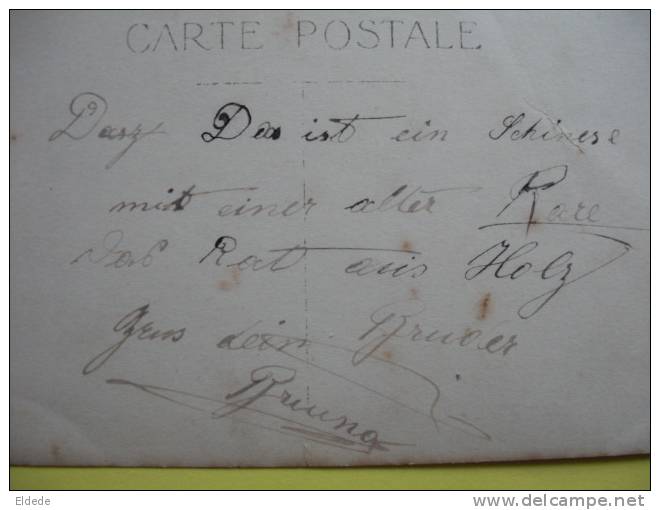 CARTE POSTALE
Das ist ein Schinese
mit einer alter Kare
das Rat aus Holz
Grus dein Bruder
Bruno
Eldede
delcampe.net